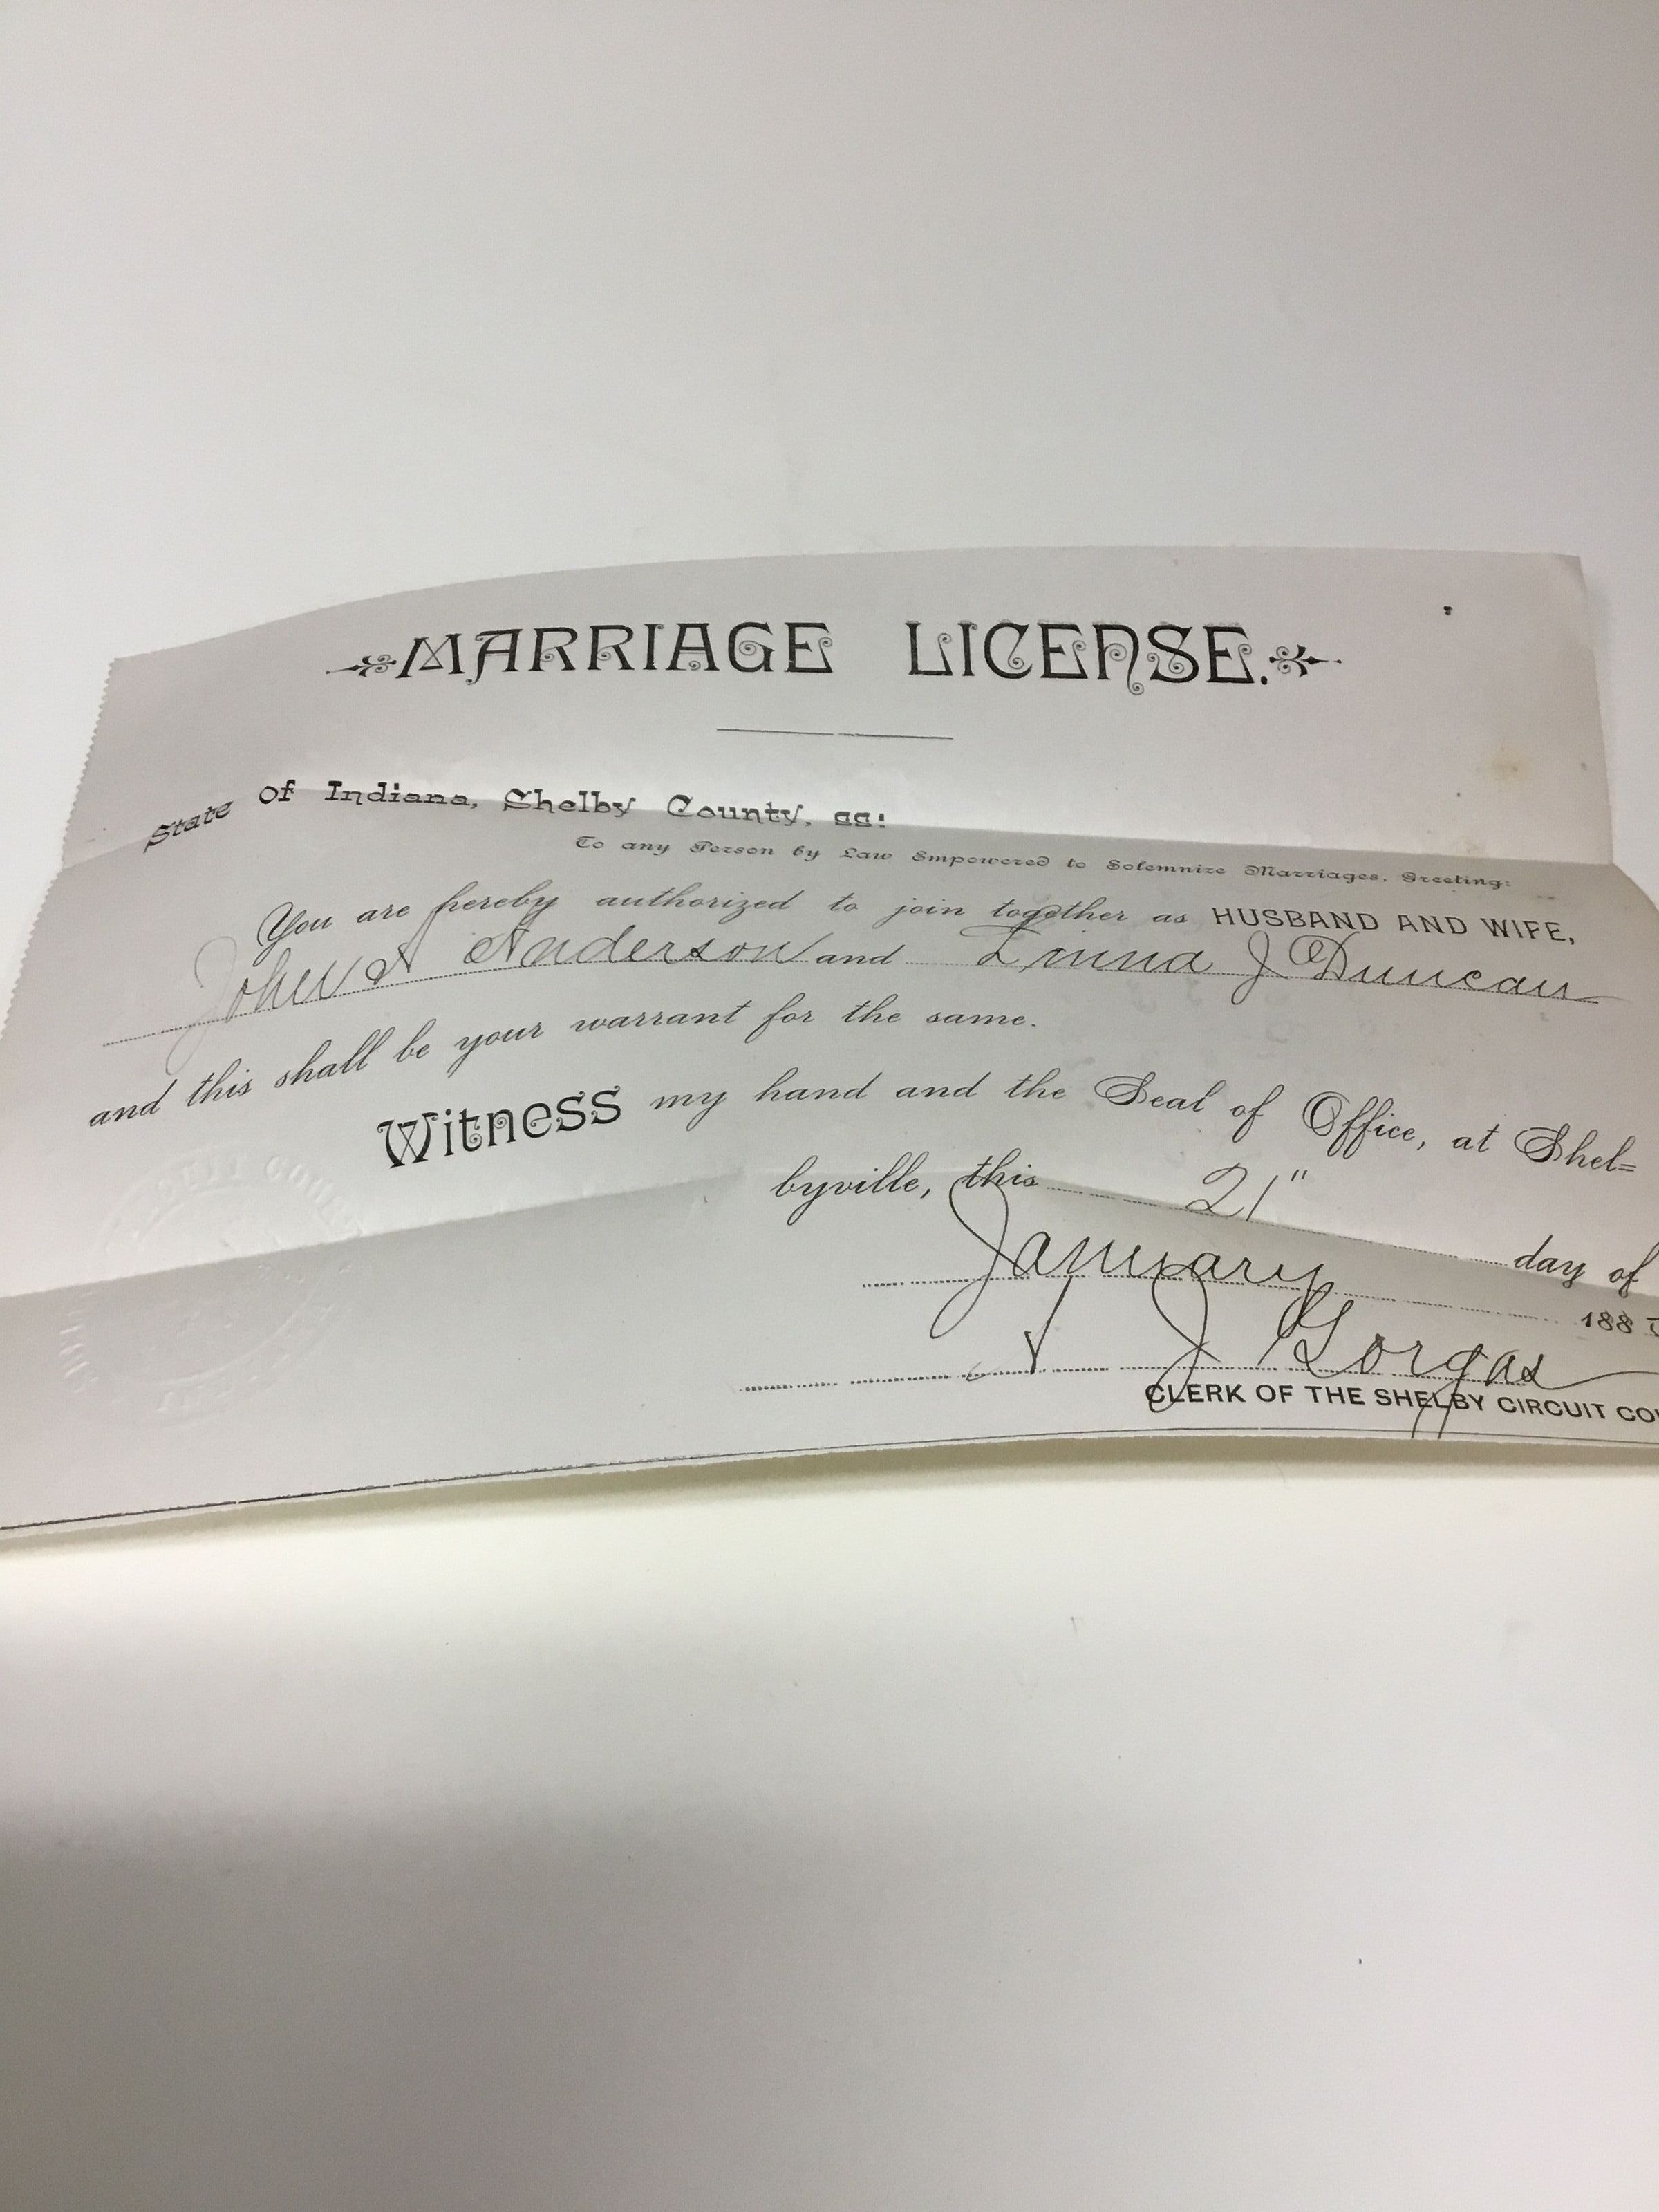 MARRIAGE LICENSE.
State of Indiana, Shelby County, ss:
To any Person by Law Empowered to Solemnize Marriages, Greeting:
You are hereby authorized to join together as HUSBAND AND WIFE,
John A Anderson and Emma J Duncan
and this shall be your warrant for the same.
Witness my hand and the Seal of Office, at Shel=
byville, this 21" day of
January 188
J Gorgas
CLERK OF THE SHELBY CIRCUIT COU